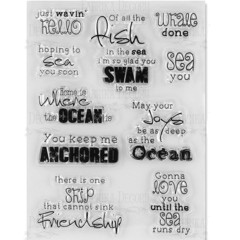 just wavin'
hello
Of all the
fish
in the sea
i'm so glad you
SWAM
to me
Whale
done
hoping to
sea
you soon
Sea
you
Home is
where
the OCEAN is
May your
Joys
be as deep
as the
Ocean
You keep me
ANCHORED
There is one
Ship
that cannot sink
Friendship
Gonna
love
you
until the
sea
runs dry